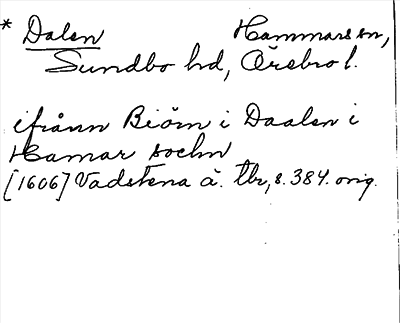 * Dalen Hammars sn,
Sundbo hd, Örebro l.
ifrånn Biörn i Daalen i
Hamar sochn
[1606] Vadstena ä. tbr, s. 384. orig.